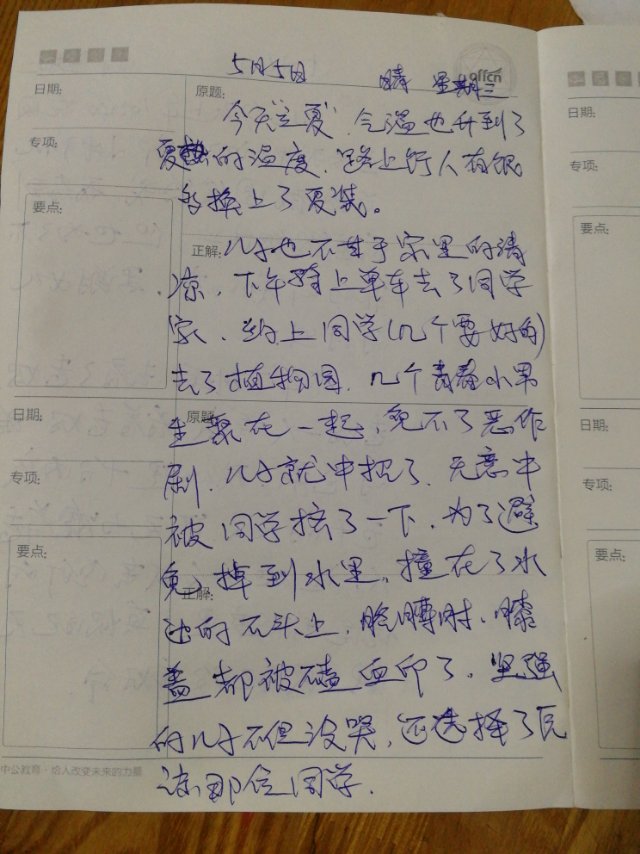 5月5日 晴 星期三
offcn
日期:
原题:
今天"立夏",气温也升到了
专项:
夏热的温度,路上行人有很
多换上了夏装。
要点:
正解:
儿子也不甘于家里的清
凉,下午骑上单车去了同学
家,约上同学(几个要好的)
去了植物园,几个青春小男
日期:
原题:
生聚在一起,免不了恶作
剧,儿子就中招了,无意中
专项:
被同学推了一下,为了避
要点:
免掉到水里,撞在了水
正解:
边的石头上,胳膊肘、膝
盖都被磕血印了,坚强
的儿子不但没哭,还选择了原
谅那位同学.
中公教育·给人改变未来的力量
日期:
专项:
要点:
日期:
专项:
要点: